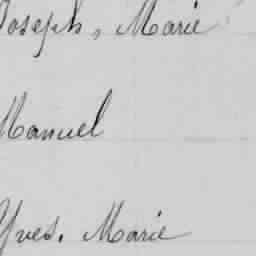 Joseph, Marie
Manuel
Yves. Marie